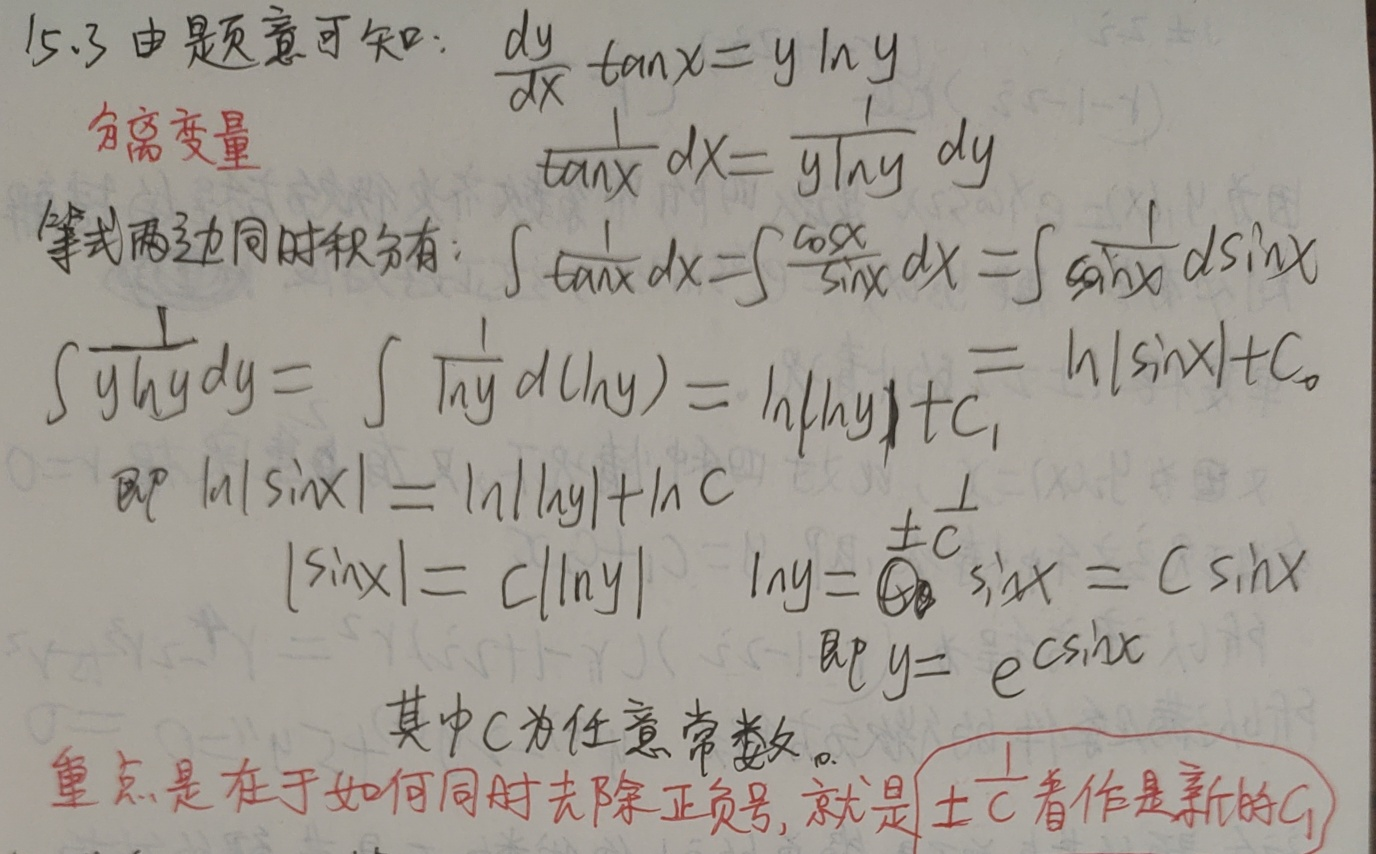 15.3 由题意可知: dy/dx tanx = y ln y
分离变量
1/tanx dx = 1/(y ln y) dy
等式两边同时积分有: ∫ 1/tanx dx = ∫ cosx/sinx dx = ∫ 1/sinx dsinx
= ln|sinx| + C₀
∫ 1/(y lny) dy = ∫ 1/lny d(lny) = ln|lny| + C₁
即 ln|sinx| = ln|lny| + ln C
|sinx| = C|lny| lny = ±1/C sinx = C sinx
即 y = e^(Csinx)
其中C为任意常数。
重点是在于如何同时去除正负号, 就是 ±1/C 看作是新的C₁